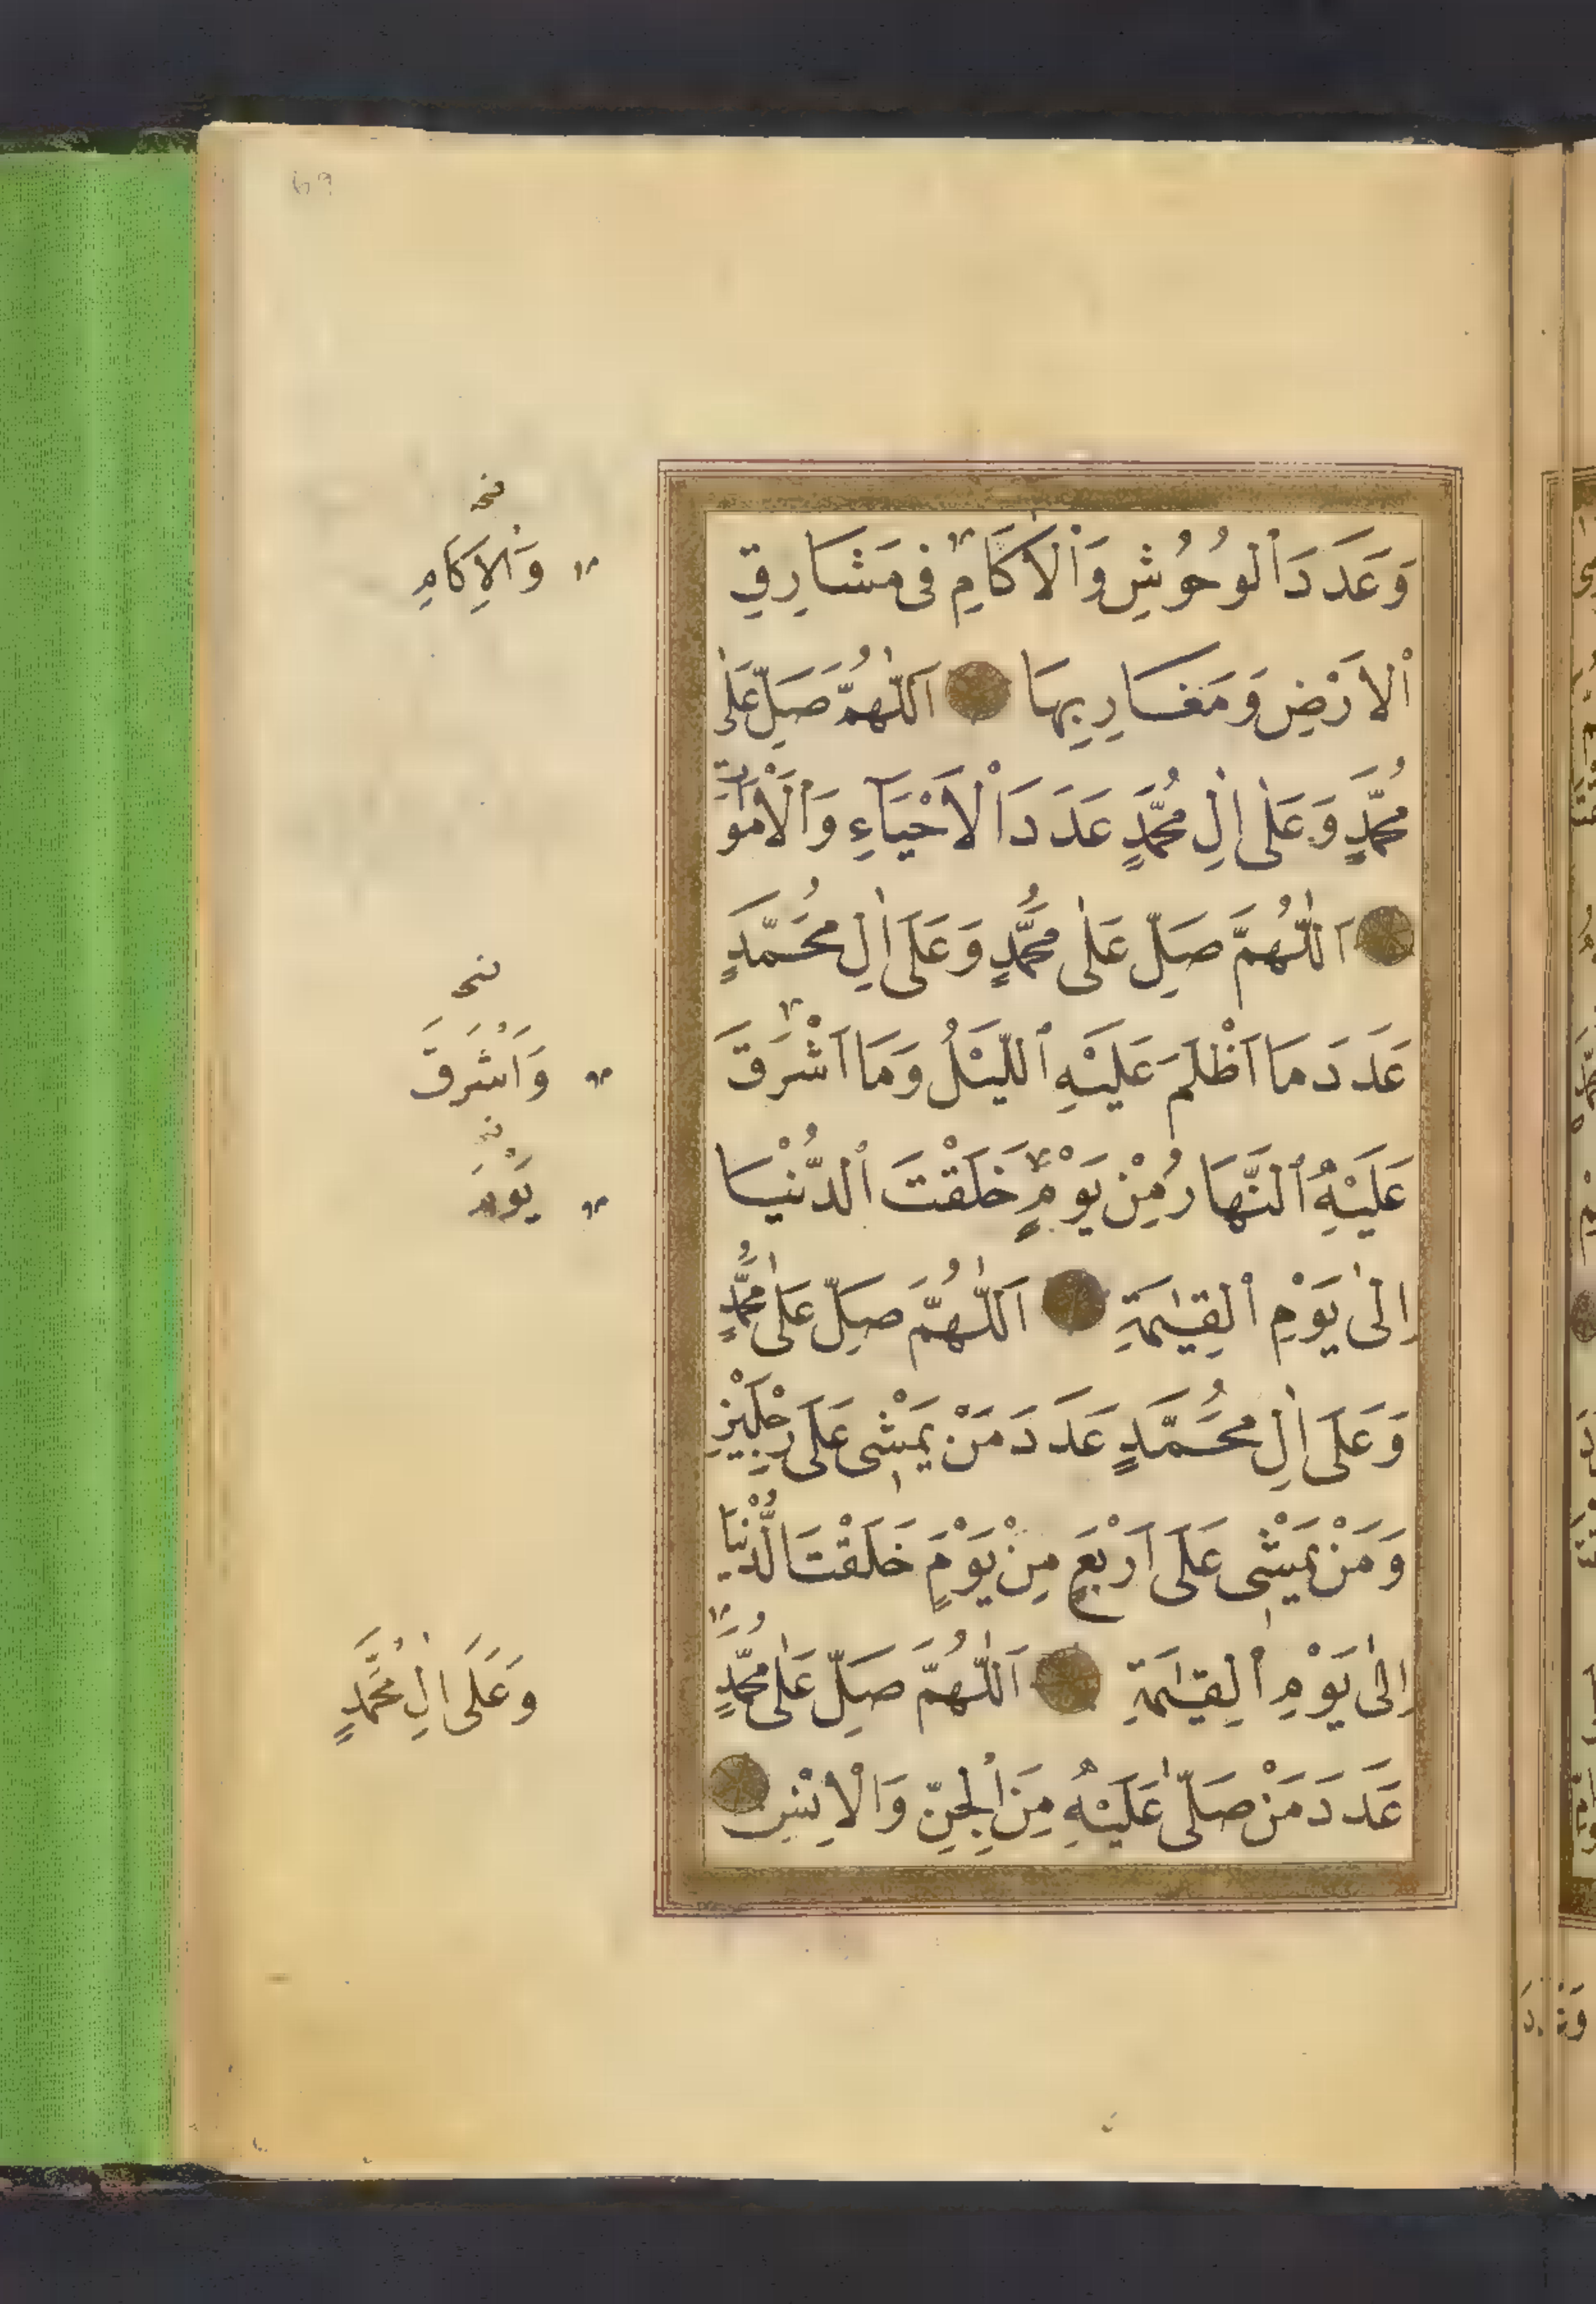 69
وَعَدَدَ ٱلْوُحُوشِ وَٱلْاٰكَامِ فِى مَشَارِقِ
ٱلْاَرْضِ وَمَغَارِبِهَا اَللّٰهُمَّ صَلِّ عَلٰى
مُحَمَّدٍ وَعَلٰى اٰلِ مُحَمَّدٍ عَدَدَ ٱلْاَحْيَآءِ وَٱلْاَمْوَاتِ
اَللّٰهُمَّ صَلِّ عَلٰى مُحَمَّدٍ وَعَلَى اٰلِ مُحَمَّدٍ
عَدَدَ مَا اَظْلَمَ عَلَيْهِ ٱللَّيْلُ وَمَا اَشْرَقَ
عَلَيْهِ ٱلنَّهَارُ مِنْ يَوْمٍ خَلَقْتَ ٱلدُّنْيَا
اِلٰى يَوْمِ ٱلْقِيٰمَةِ اَللّٰهُمَّ صَلِّ عَلٰى مُحَمَّدٍ
وَعَلَى اٰلِ مُحَمَّدٍ عَدَدَ مَنْ يَمْشِى عَلَى رِجْلَيْنِ
وَمَنْ يَمْشِى عَلَى اَرْبَعٍ مِنْ يَوْمٍ خَلَقْتَ الدُّنْيَا
اِلٰى يَوْمِ ٱلْقِيٰمَةِ اَللّٰهُمَّ صَلِّ عَلٰى مُحَمَّدٍ
عَدَدَ مَنْ صَلّٰى عَلَيْهِ مِنَ ٱلْجِنِّ وَٱلْاِنْسِ
نخـ
وَٱلْاِكَامِ
نخـ
وَاَشْرَقَ
نخـ
يَوْمَ
وَعَلَى اٰلِ مُحَمَّدٍ